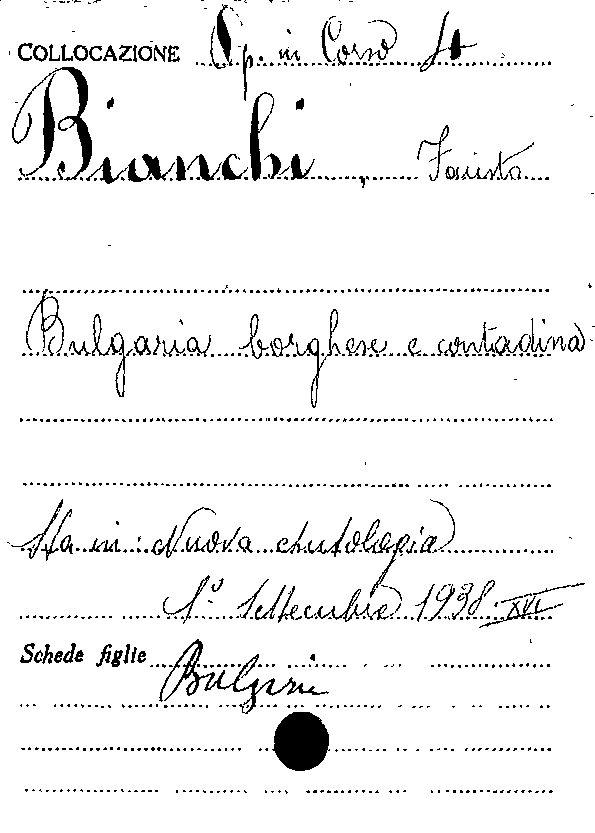 COLLOCAZIONE Op. in Corso St
Bianchi, Fausto
Bulgaria borghese e contadina
Sta in: Nuova Antologia
1º Settembre 1938. XVI
Schede figlie
Bulgaria